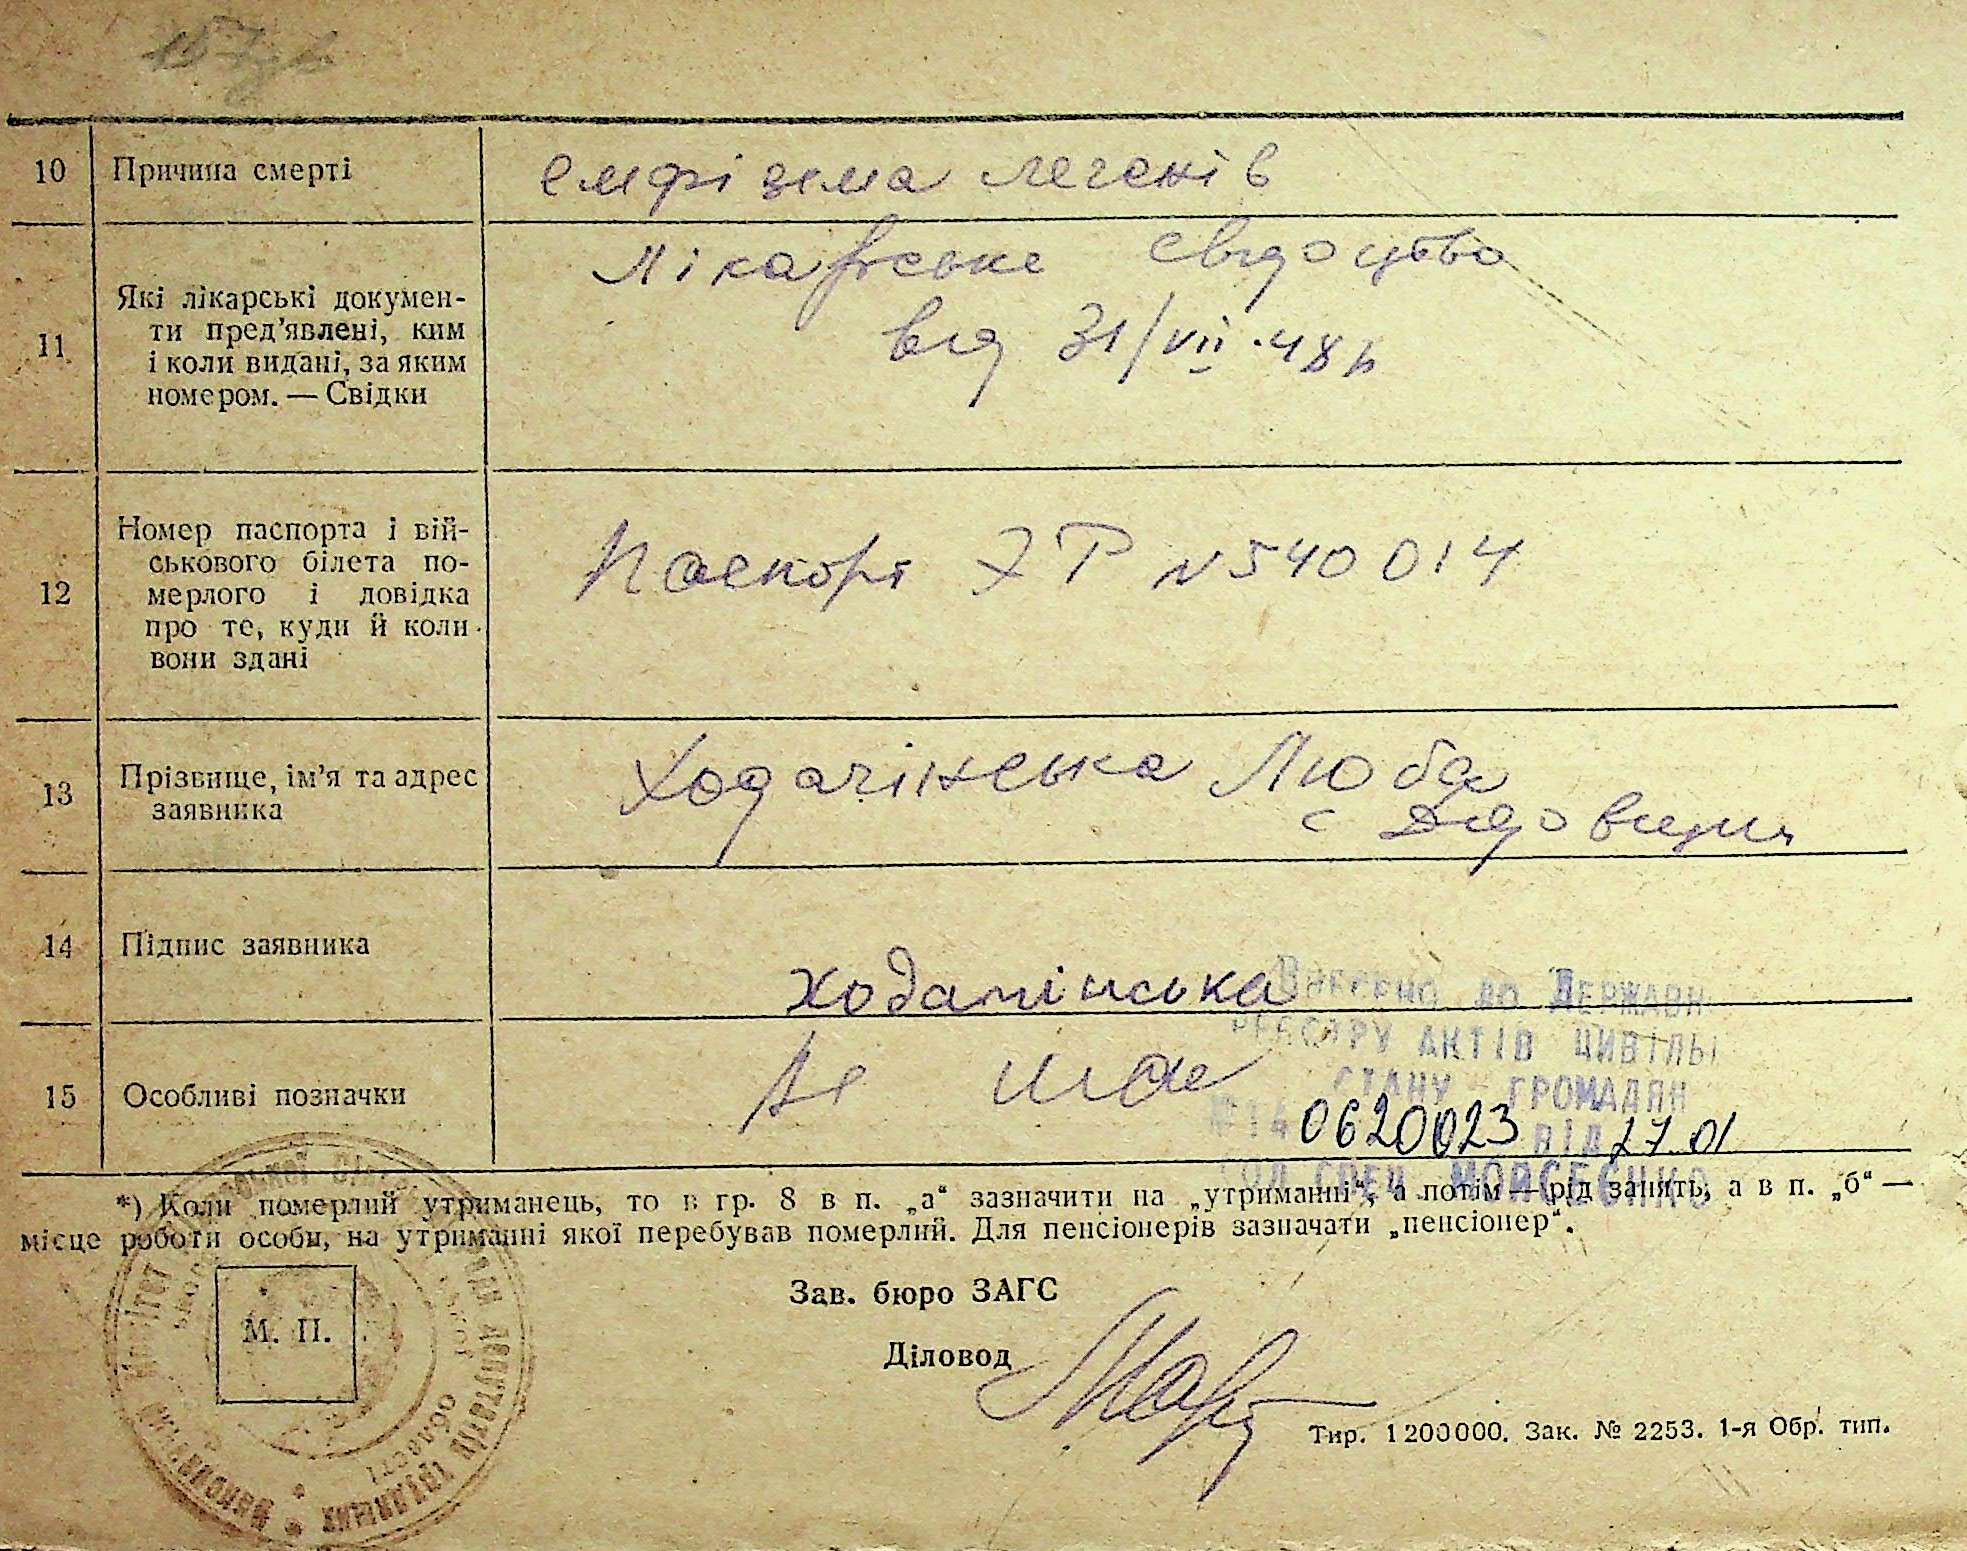 10 Причина смерті емфізема легенів
11 Які лікарські докумен-
ти пред'явлені, ким
і коли видані, за яким
номером. — Свідки
Лікарське свідоцтво
від 31/VII-48 р
12 Номер паспорта і вій-
ськового білета по-
мерлого і довідка
про те, куди й коли
вони здані
Паспорт ХР N 540014
13 Прізвище, ім'я та адрес
заявника
Ходачінська Люба
с
14 Підпис заявника
15 Особливі позначки
Не має
ДО ДЕРЖАВН
РЕЄСТРУ АКТІВ ЦИВІЛЬ
СТАНУ ГРОМАДЯН
0620023 ВІД 27.01
СПЕЦ МОЙСЕЄНКО
*) Коли померлий утриманець, то в гр. 8 в п. „а“ зазначити на „утриманні“, а потім — рід занять, а в п. „б“ —
місце роботи особи, на утриманні якої перебував померлий. Для пенсіонерів зазначати „пенсіонер“.
Зав. бюро ЗАГС
М. П.
Діловод
Тир. 1200000. Зак. № 2253. 1-я Обр. тип.